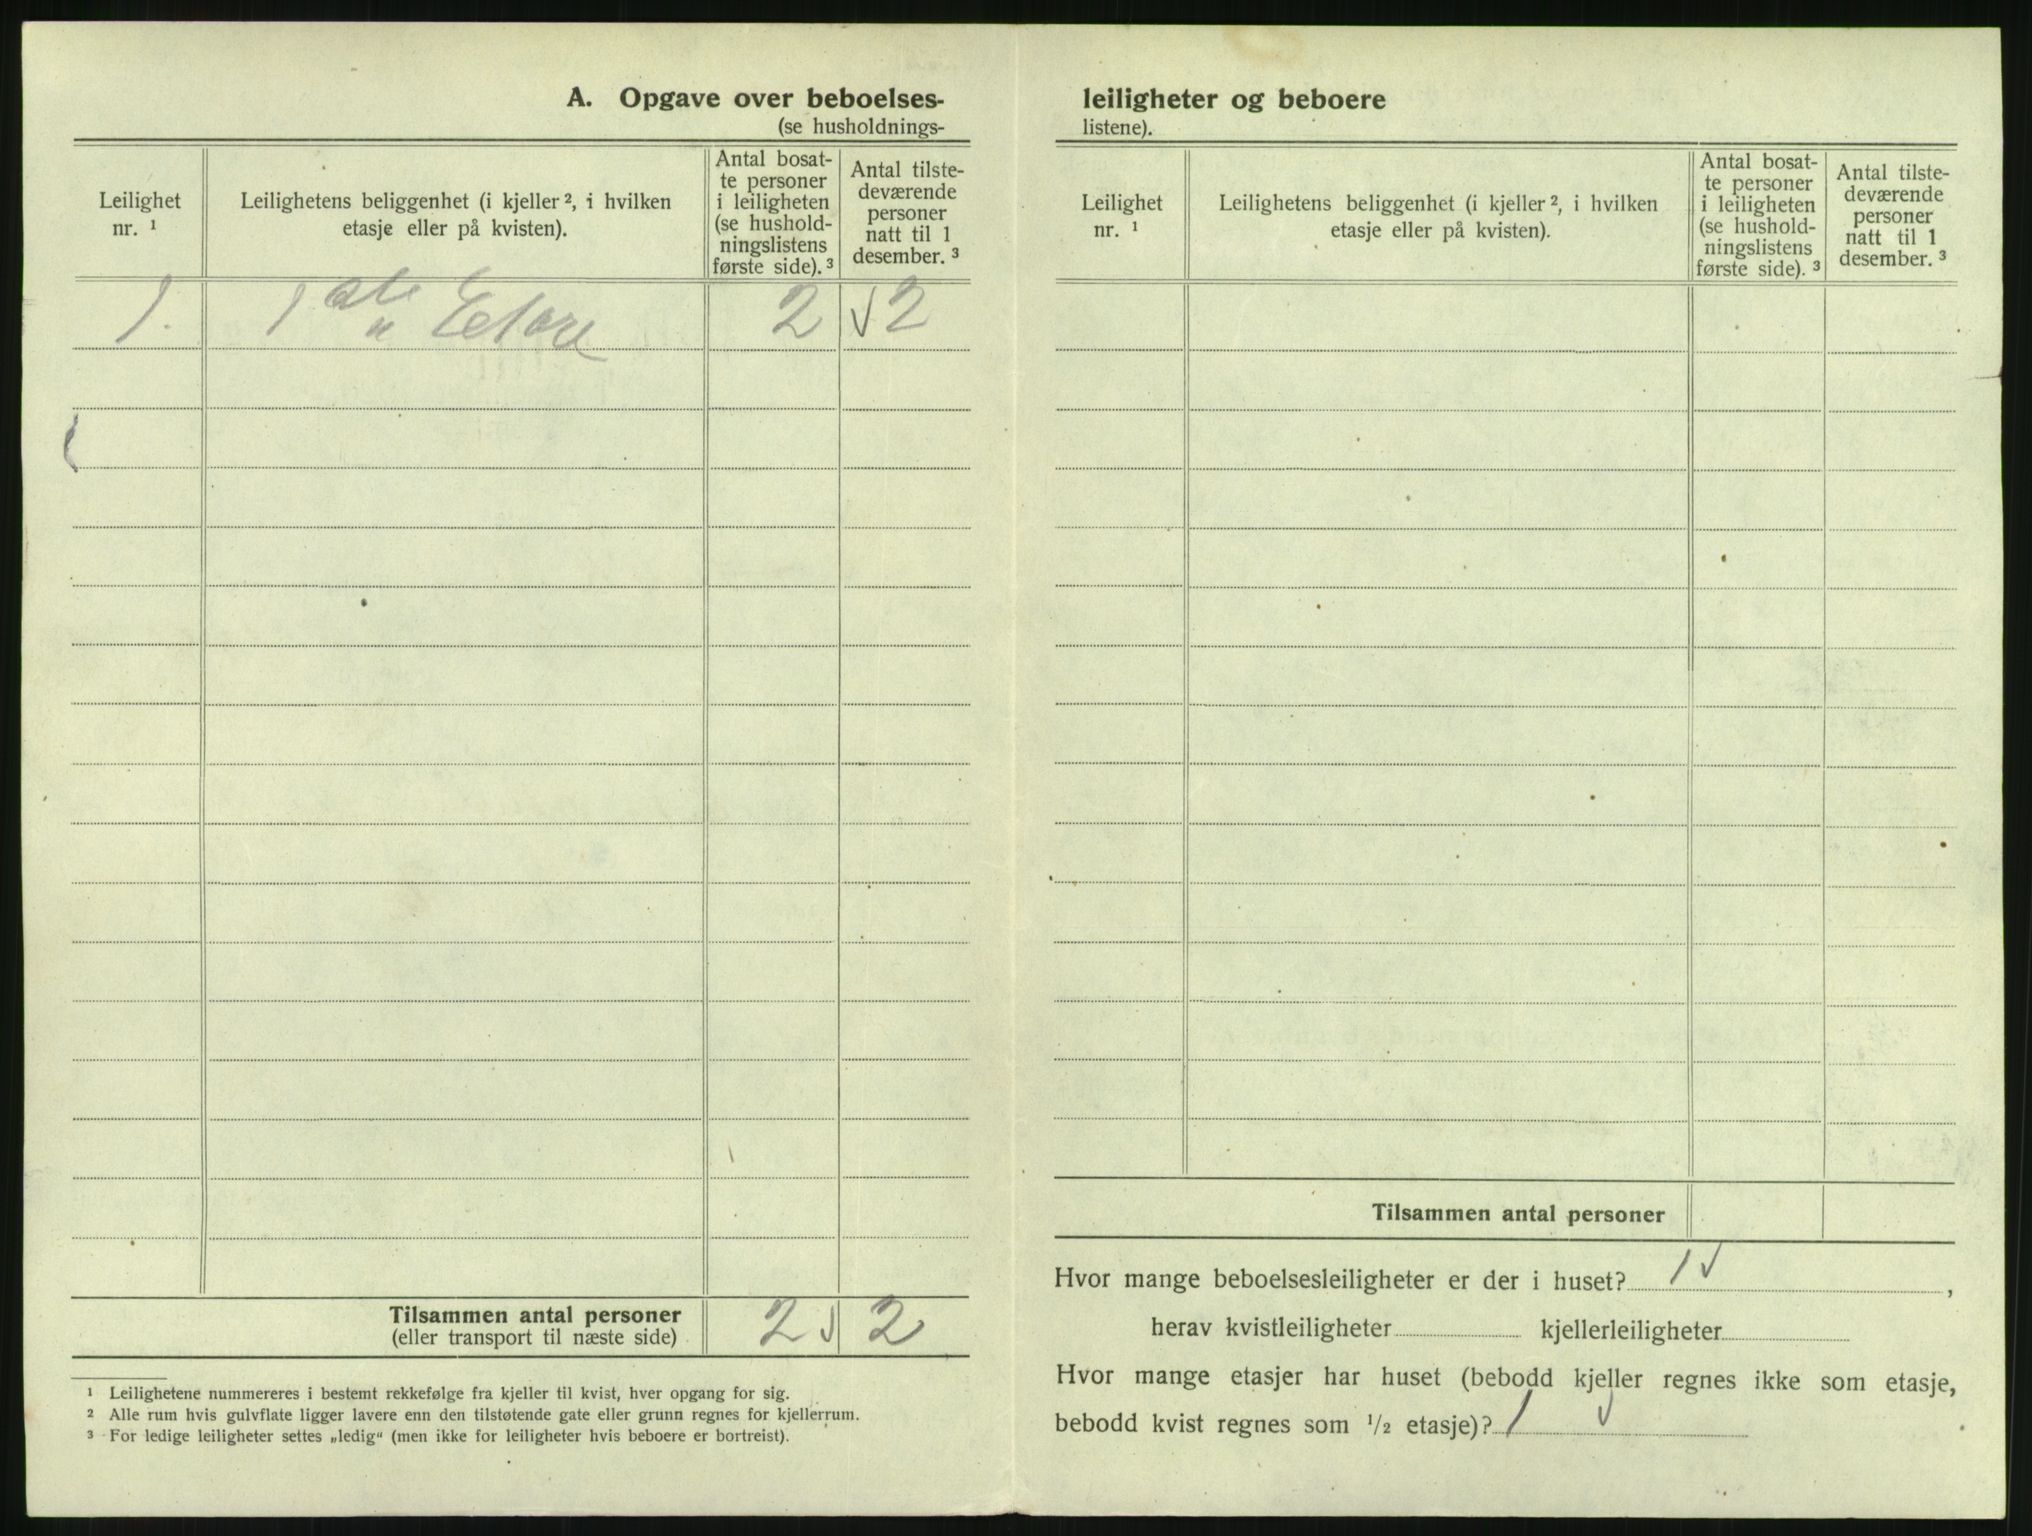 A. Opgave over beboelses-
(se husholdnings-
Leilighet
nr. ¹
Leilighetens beliggenhet (i kjeller ², i hvilken
etasje eller på kvisten).
Antal bosat-
te personer
i leiligheten
(se hushold-
ningslistens
første side). ³
Antal tilste-
deværende
personer
natt til 1
desember. ³
1. 1ste 2 √ 2
Tilsammen antal personer 2 √ 2
(eller transport til næste side)
¹ Leilighetene nummereres i bestemt rekkefølge fra kjeller til kvist, hver opgang for sig.
² Alle rum hvis gulvflate ligger lavere enn den tilstøtende gate eller grunn regnes for kjellerrum.
³ For ledige leiligheter settes „ledig“ (men ikke for leiligheter hvis beboere er bortreist).
leiligheter og beboere
listene).
Leilighet
nr. ¹
Leilighetens beliggenhet (i kjeller ², i hvilken
etasje eller på kvisten).
Antal bosat-
te personer
i leiligheten
(se hushold-
ningslistens
første side). ³
Antal tilste-
deværende
personer
natt til 1
desember. ³
Tilsammen antal personer
Hvor mange beboelsesleiligheter er der i huset? 1 √ ,
herav kvistleiligheter kjellerleiligheter
Hvor mange etasjer har huset (bebodd kjeller regnes ikke som etasje,
bebodd kvist regnes som ½ etasje)? 1 √